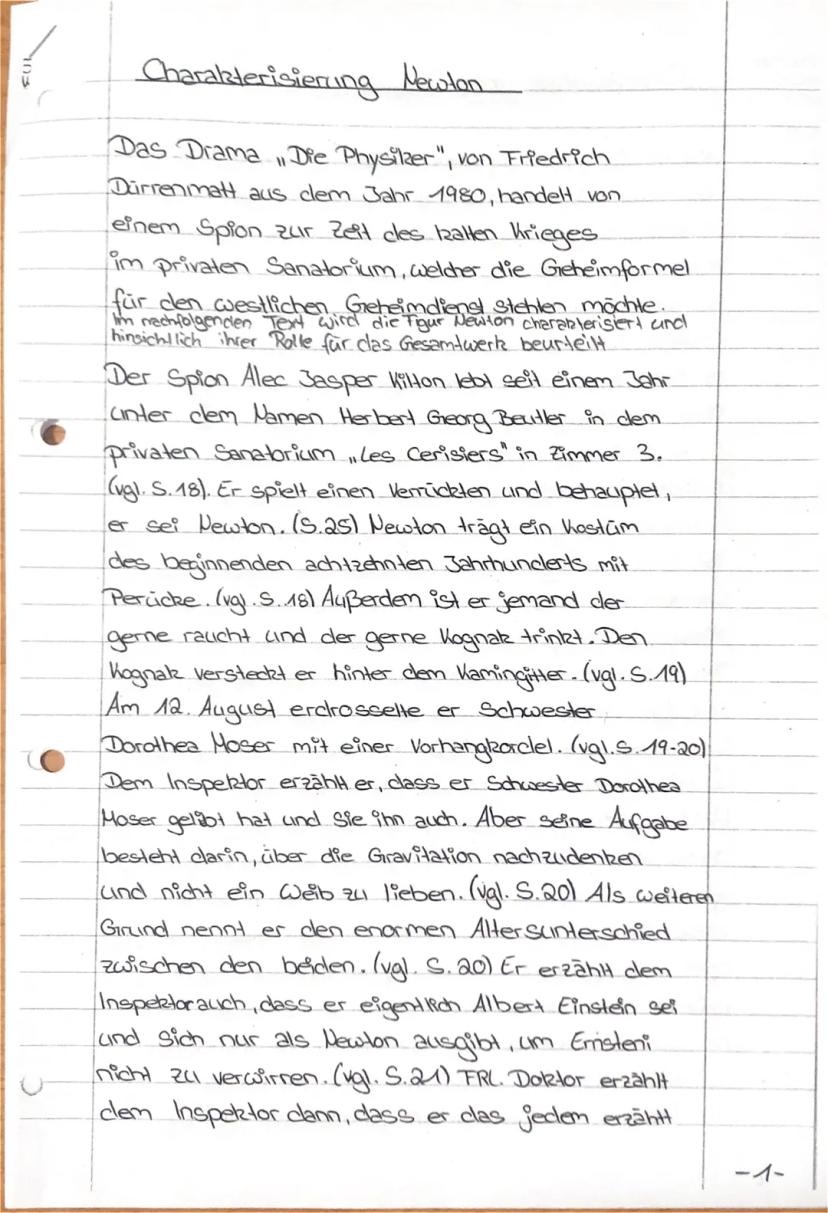 Charakterisierung Newton
Das Drama „Die Physiker", von Friedrich
Dürrenmatt aus dem Jahr 1980, handelt von
einem Spion zur Zeit des kalten Krieges
im privaten Sanatorium, welcher die Geheimformel
für den westlichen Geheimdienst stehlen möchte.
Im nachfolgenden Text wird die Figur Newton charakterisiert und
hinsichtlich ihrer Rolle für das Gesamtwerk beurteilt
Der Spion Alec Jasper Kilton lebt seit einem Jahr
unter dem Namen Herbert Georg Beutler in dem
privaten Sanatorium „Les Cerisiers" in Zimmer 3.
(vgl. S. 18). Er spielt einen Verrückten und behauptet,
er sei Newton. (S.25) Newton trägt ein Kostüm
des beginnenden achtzehnten Jahrhunderts mit
Perücke. (vgl. S. 18) Außerdem ist er jemand der
gerne raucht und der gerne Kognak trinkt. Den
Kognak versteckt er hinter dem Kamingitter. (vgl. S. 19)
Am 12. August erdrosselte er Schwester
Dorothea Moser mit einer Vorhangkordel. (vgl. S. 19-20)
Dem Inspektor erzählt er, dass er Schwester Dorothea
Moser geliebt hat und sie ihn auch. Aber seine Aufgabe
besteht darin, über die Gravitation nachzudenken
und nicht ein Weib zu lieben. (vgl. S. 20) Als weiteren
Grund nennt er den enormen Altersunterschied
zwischen den beiden. (vgl. S. 20) Er erzählt dem
Inspektor auch, dass er eigentlich Albert Einstein sei
und sich nur als Newton ausgibt, um Ernsteni
nicht zu verwirren. (vgl. S. 21) FRL. Doktor erzählt
dem Inspektor dann, dass er das jedem erzählt
-1-